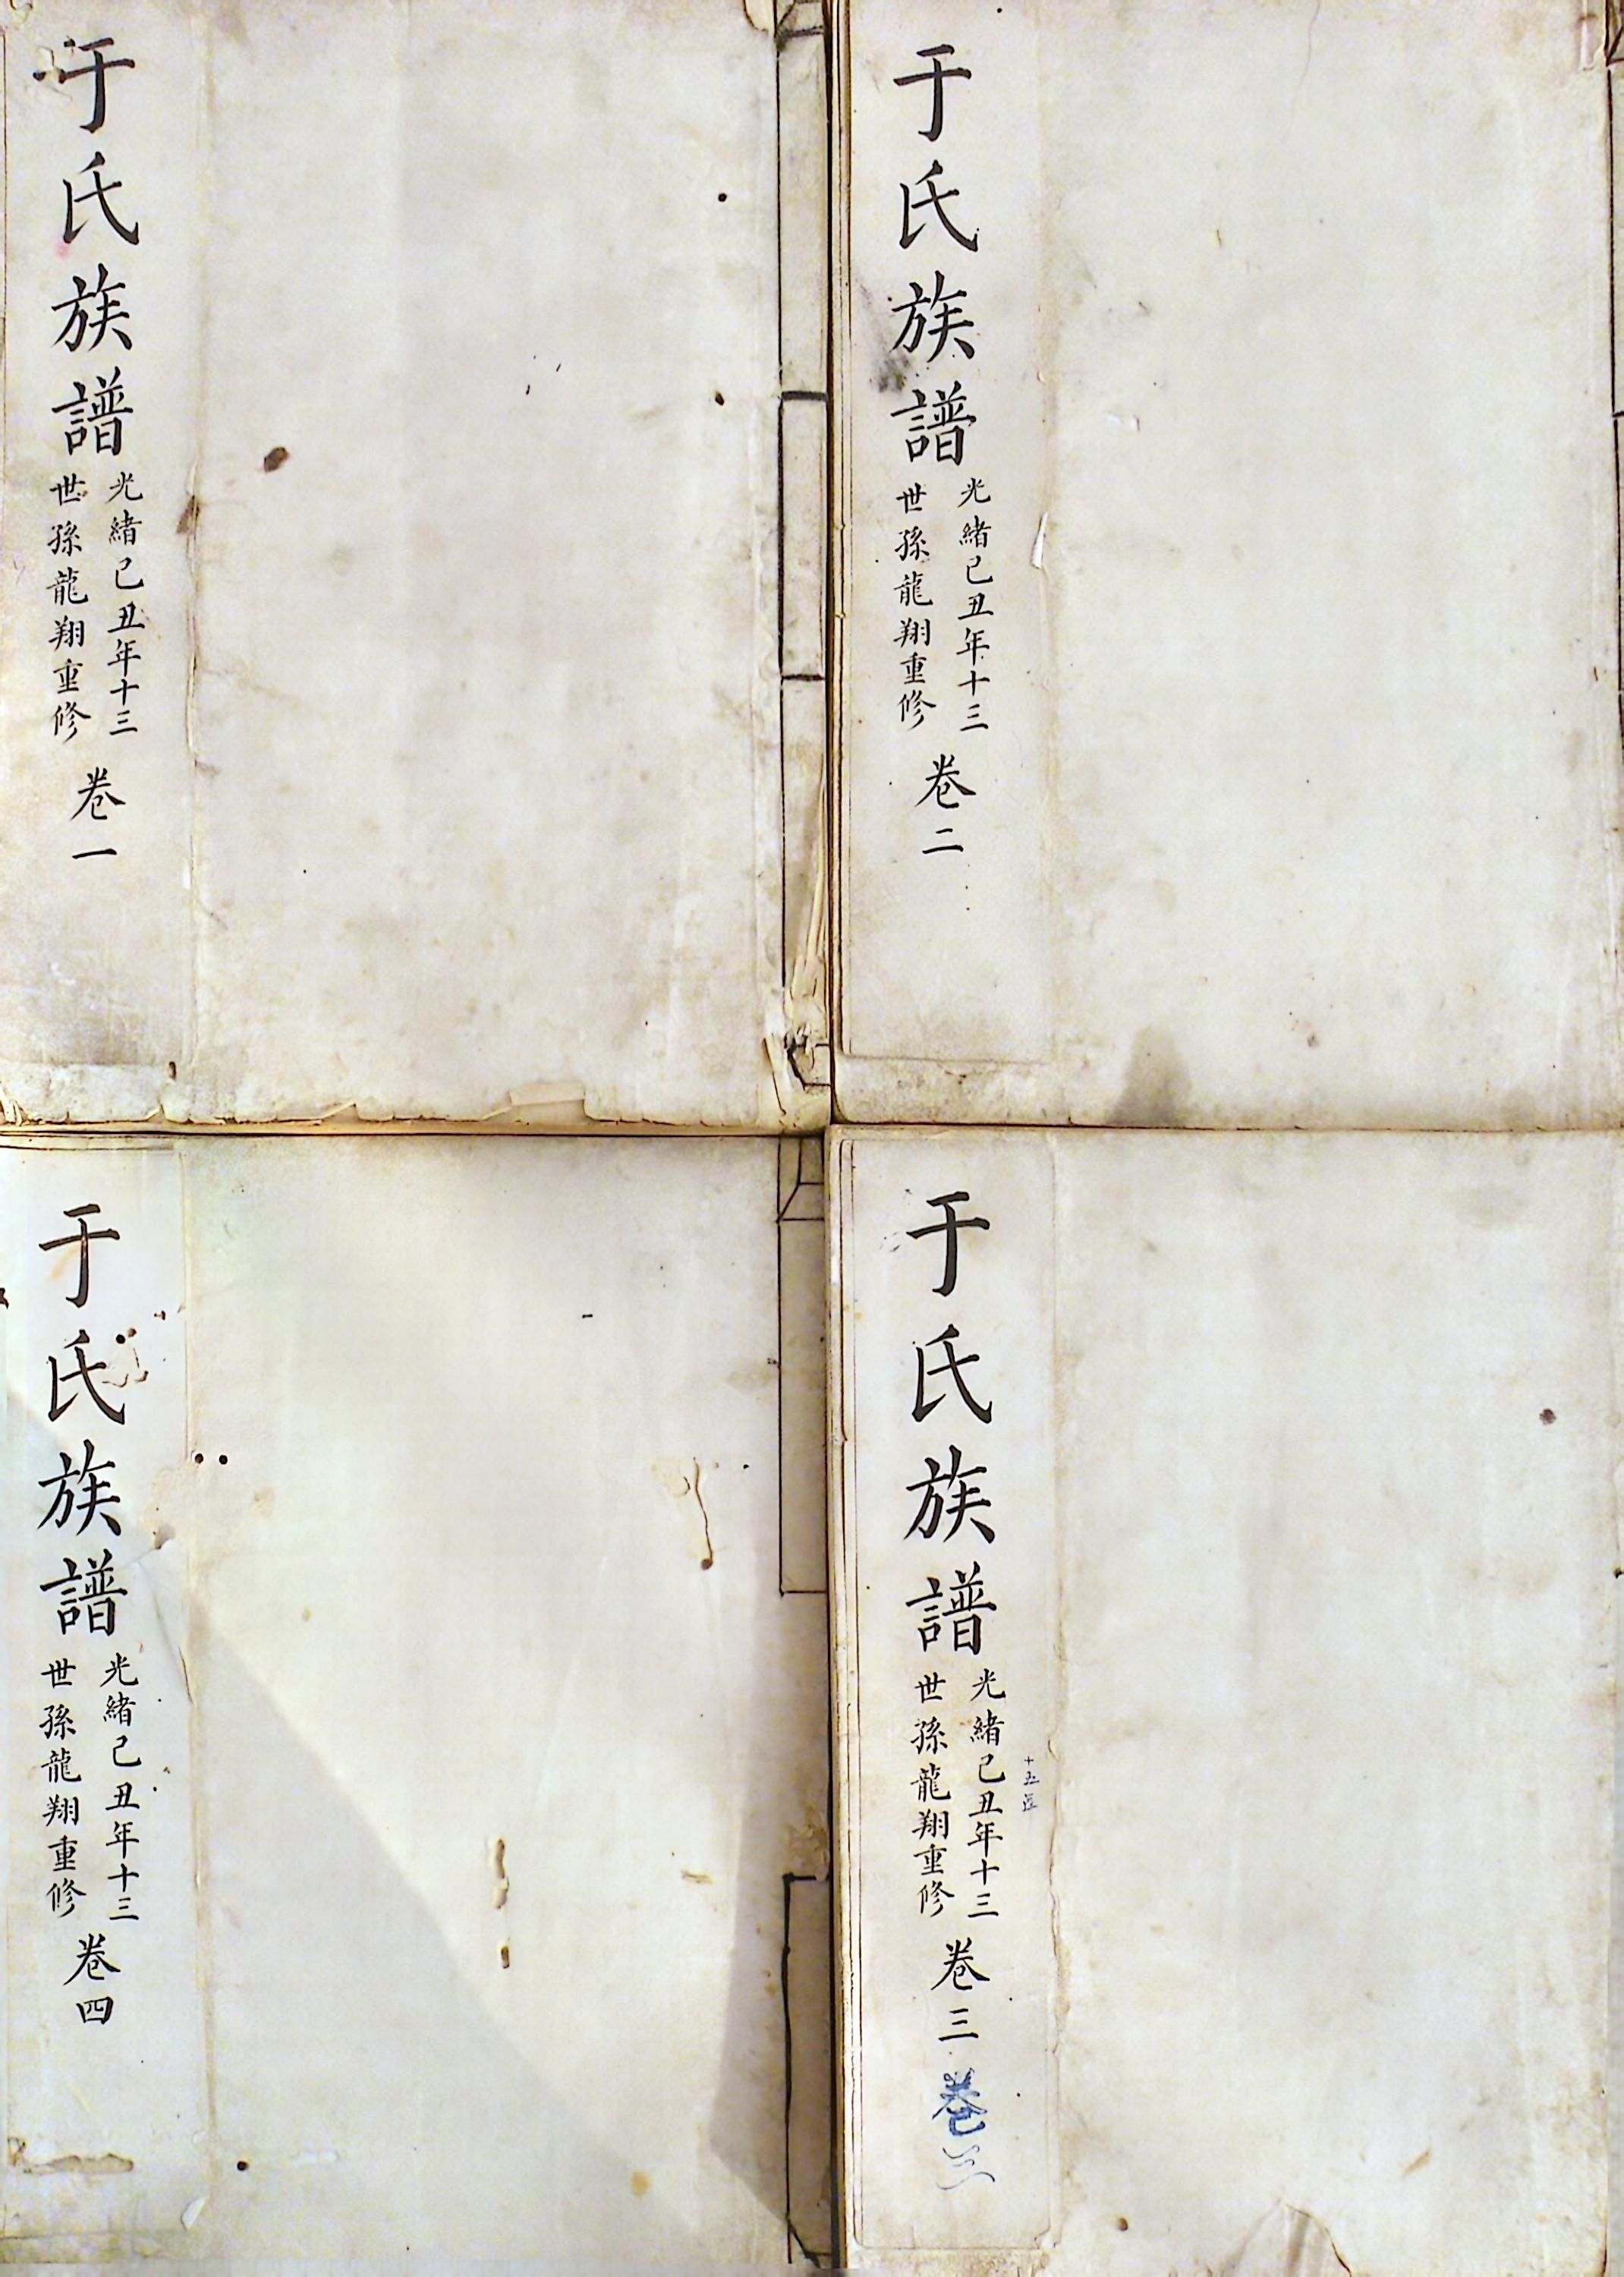 于氏族譜
光緒己丑年十三
世孫龍翔重修
卷一
于氏族譜
光緒己丑年十三
世孫龍翔重修
卷二
于氏族譜
光緒己丑年十三
世孫龍翔重修
卷三
卷三
十五
于氏族譜
光緒己丑年十三
世孫龍翔重修
卷四